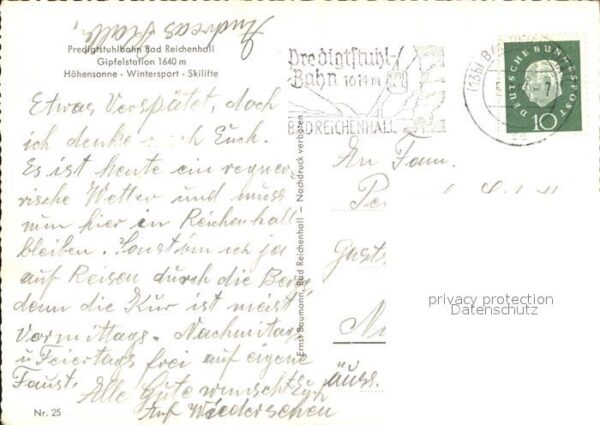 Andreas
Predigtstuhlbahn Bad Reichenhall
Gipfelstation 1640 m
Höhensonne - Wintersport - Skilifte
Etwas Verspätet, doch
ich denke auch Euch.
Es ist heute ein regner-
rische Wetter und muss
nun hier in Reichenhall
bleiben. Sonst bin ich ja
auf Reisen durch die Berg
denn die Kur ist meist
Vormittags. Nachmittags
u Feiertags frei auf eigene
Faust. Alle Gute wünscht Euch
Auf Wiedersehen
Nr. 25
Ernst Baumann, Bad Reichenhall — Nachdruck verboten
Predigtstuhl-
Bahn 1614 m
BAD REICHENHALL
(13b) BAD
DEUTSCHE BUNDESPOST
10
An Fam.
Gast
äuss.
privacy protection
Datenschutz